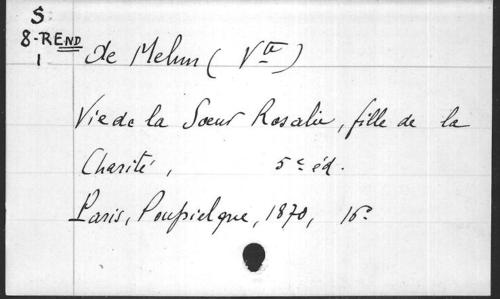 S
8-REND
1
de Melun (Vte)
Vie de la Soeur Rosalie, fille de la
Charité, 5e éd.
Paris, Poupielgue, 1870, 16°